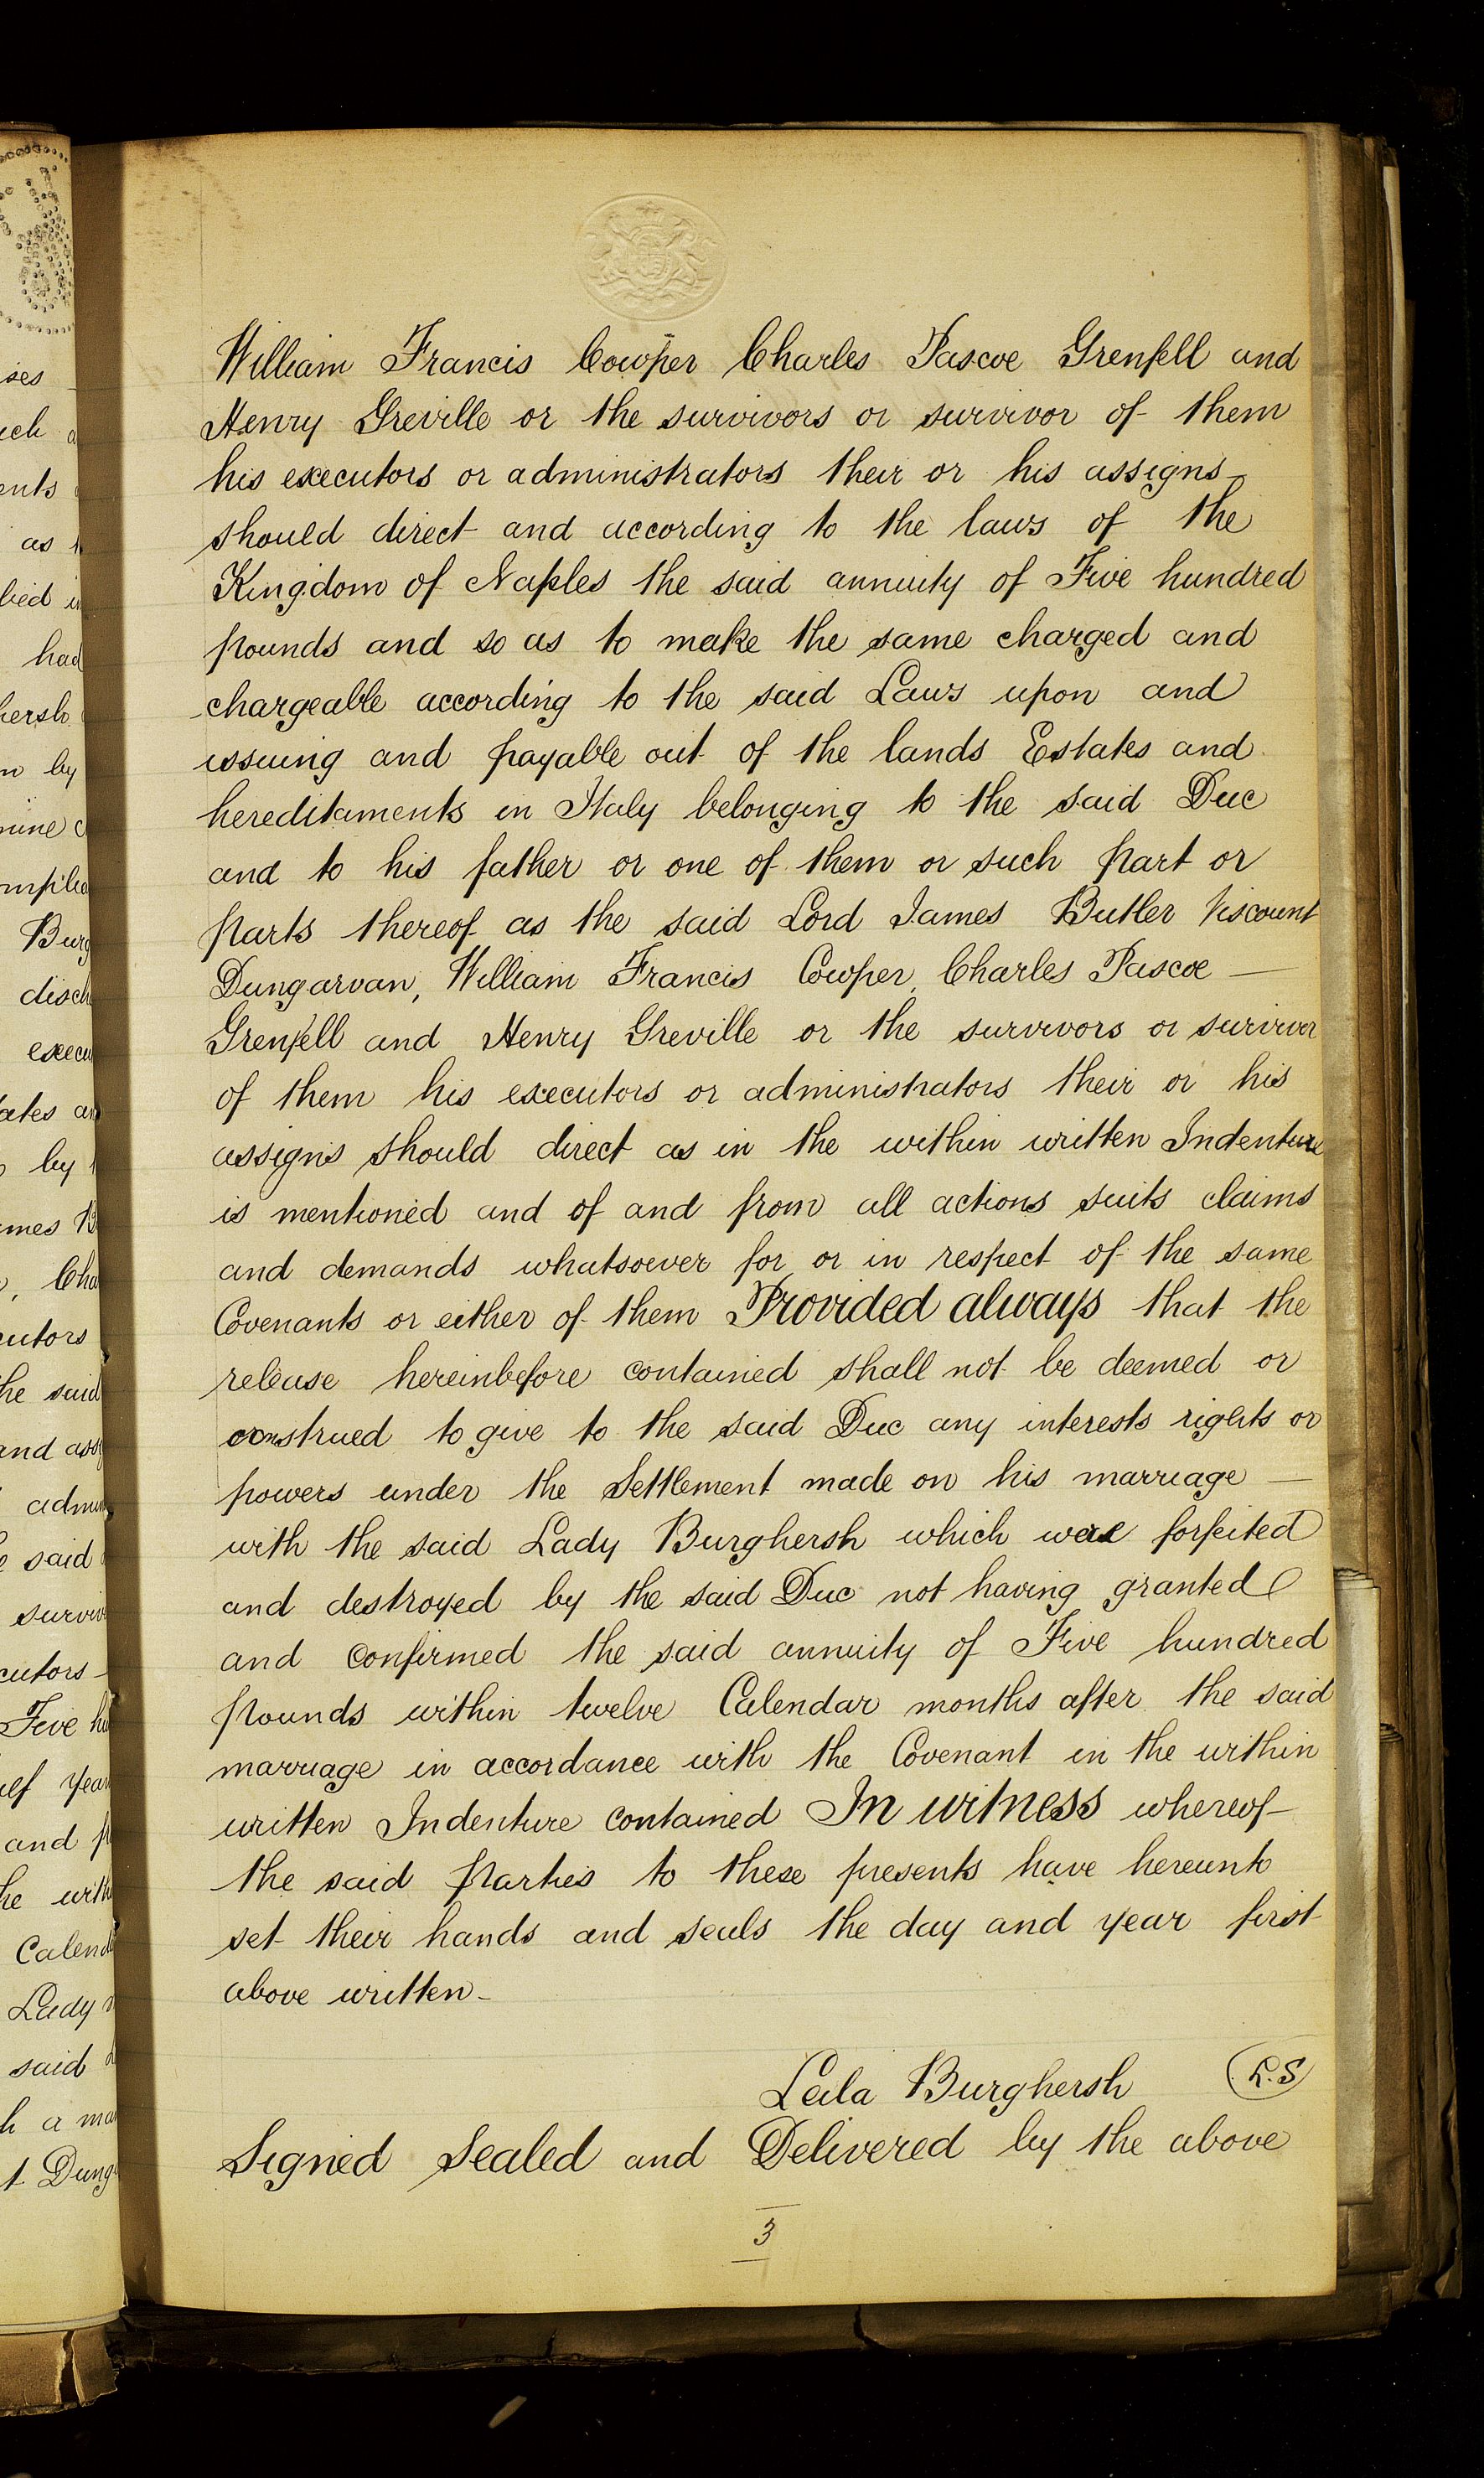 William Francis Cowper Charles Pascoe Grenfell and
Henry Greville or the survivors or survivor of them
his executors or administrators their or his assigns
should direct and according to the laws of the
Kingdom of Naples the said annuity of Five hundred
pounds and so as to make the same charged and
chargeable according to the said Laws upon and
issuing and payable out of the lands Estates and
hereditaments in Italy belonging to the said Duc
and to his father or one of them or such part or
parts thereof as the said Lord James Butler Viscount
Dungarvan, William Francis Cowper, Charles Pascoe —
Grenfell and Henry Greville or the survivors or survivor
of them his executors or administrators their or his
assigns should direct as in the within written Indenture
is mentioned and of and from all actions suits claims
and demands whatsoever for or in respect of the same
Covenants or either of them Provided always that the
release hereinbefore contained shall not be deemed or
construed to give to the said Duc any interests rights or
powers under the Settlement made on his marriage —
with the said Lady Burghersh which were forfeited
and destroyed by the said Duc not having granted
and confirmed the said annuity of Five hundred
pounds within twelve Calendar months after the said
marriage in accordance with the Covenant in the within
written Indenture contained In witness whereof
the said parties to these presents have hereunto
set their hands and seals the day and year first
above written -
Leila Burghersh L.S
Signed Sealed and Delivered by the above
3